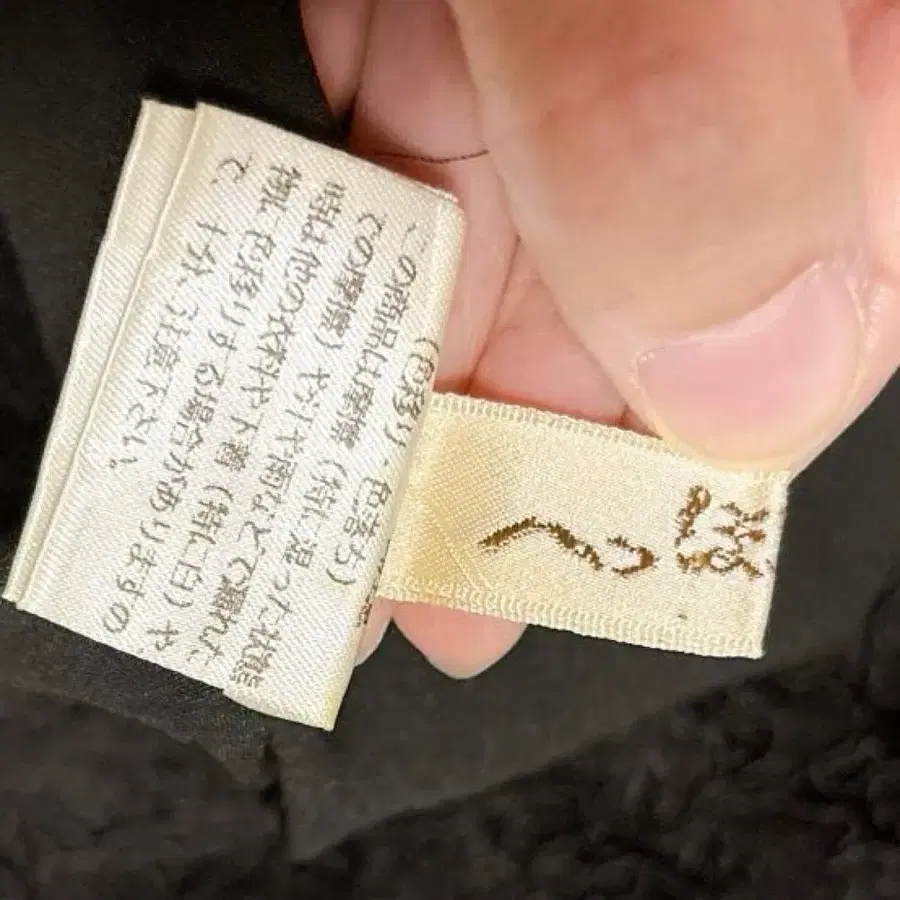 (色移り・色落ち)
この商品は摩擦（特に湿った状態
での摩擦）や汗や雨などで濡れた
時は他の衣料や下着（特に白）や
物に色移りする場合がありますの
で、十分ご注意下さい。